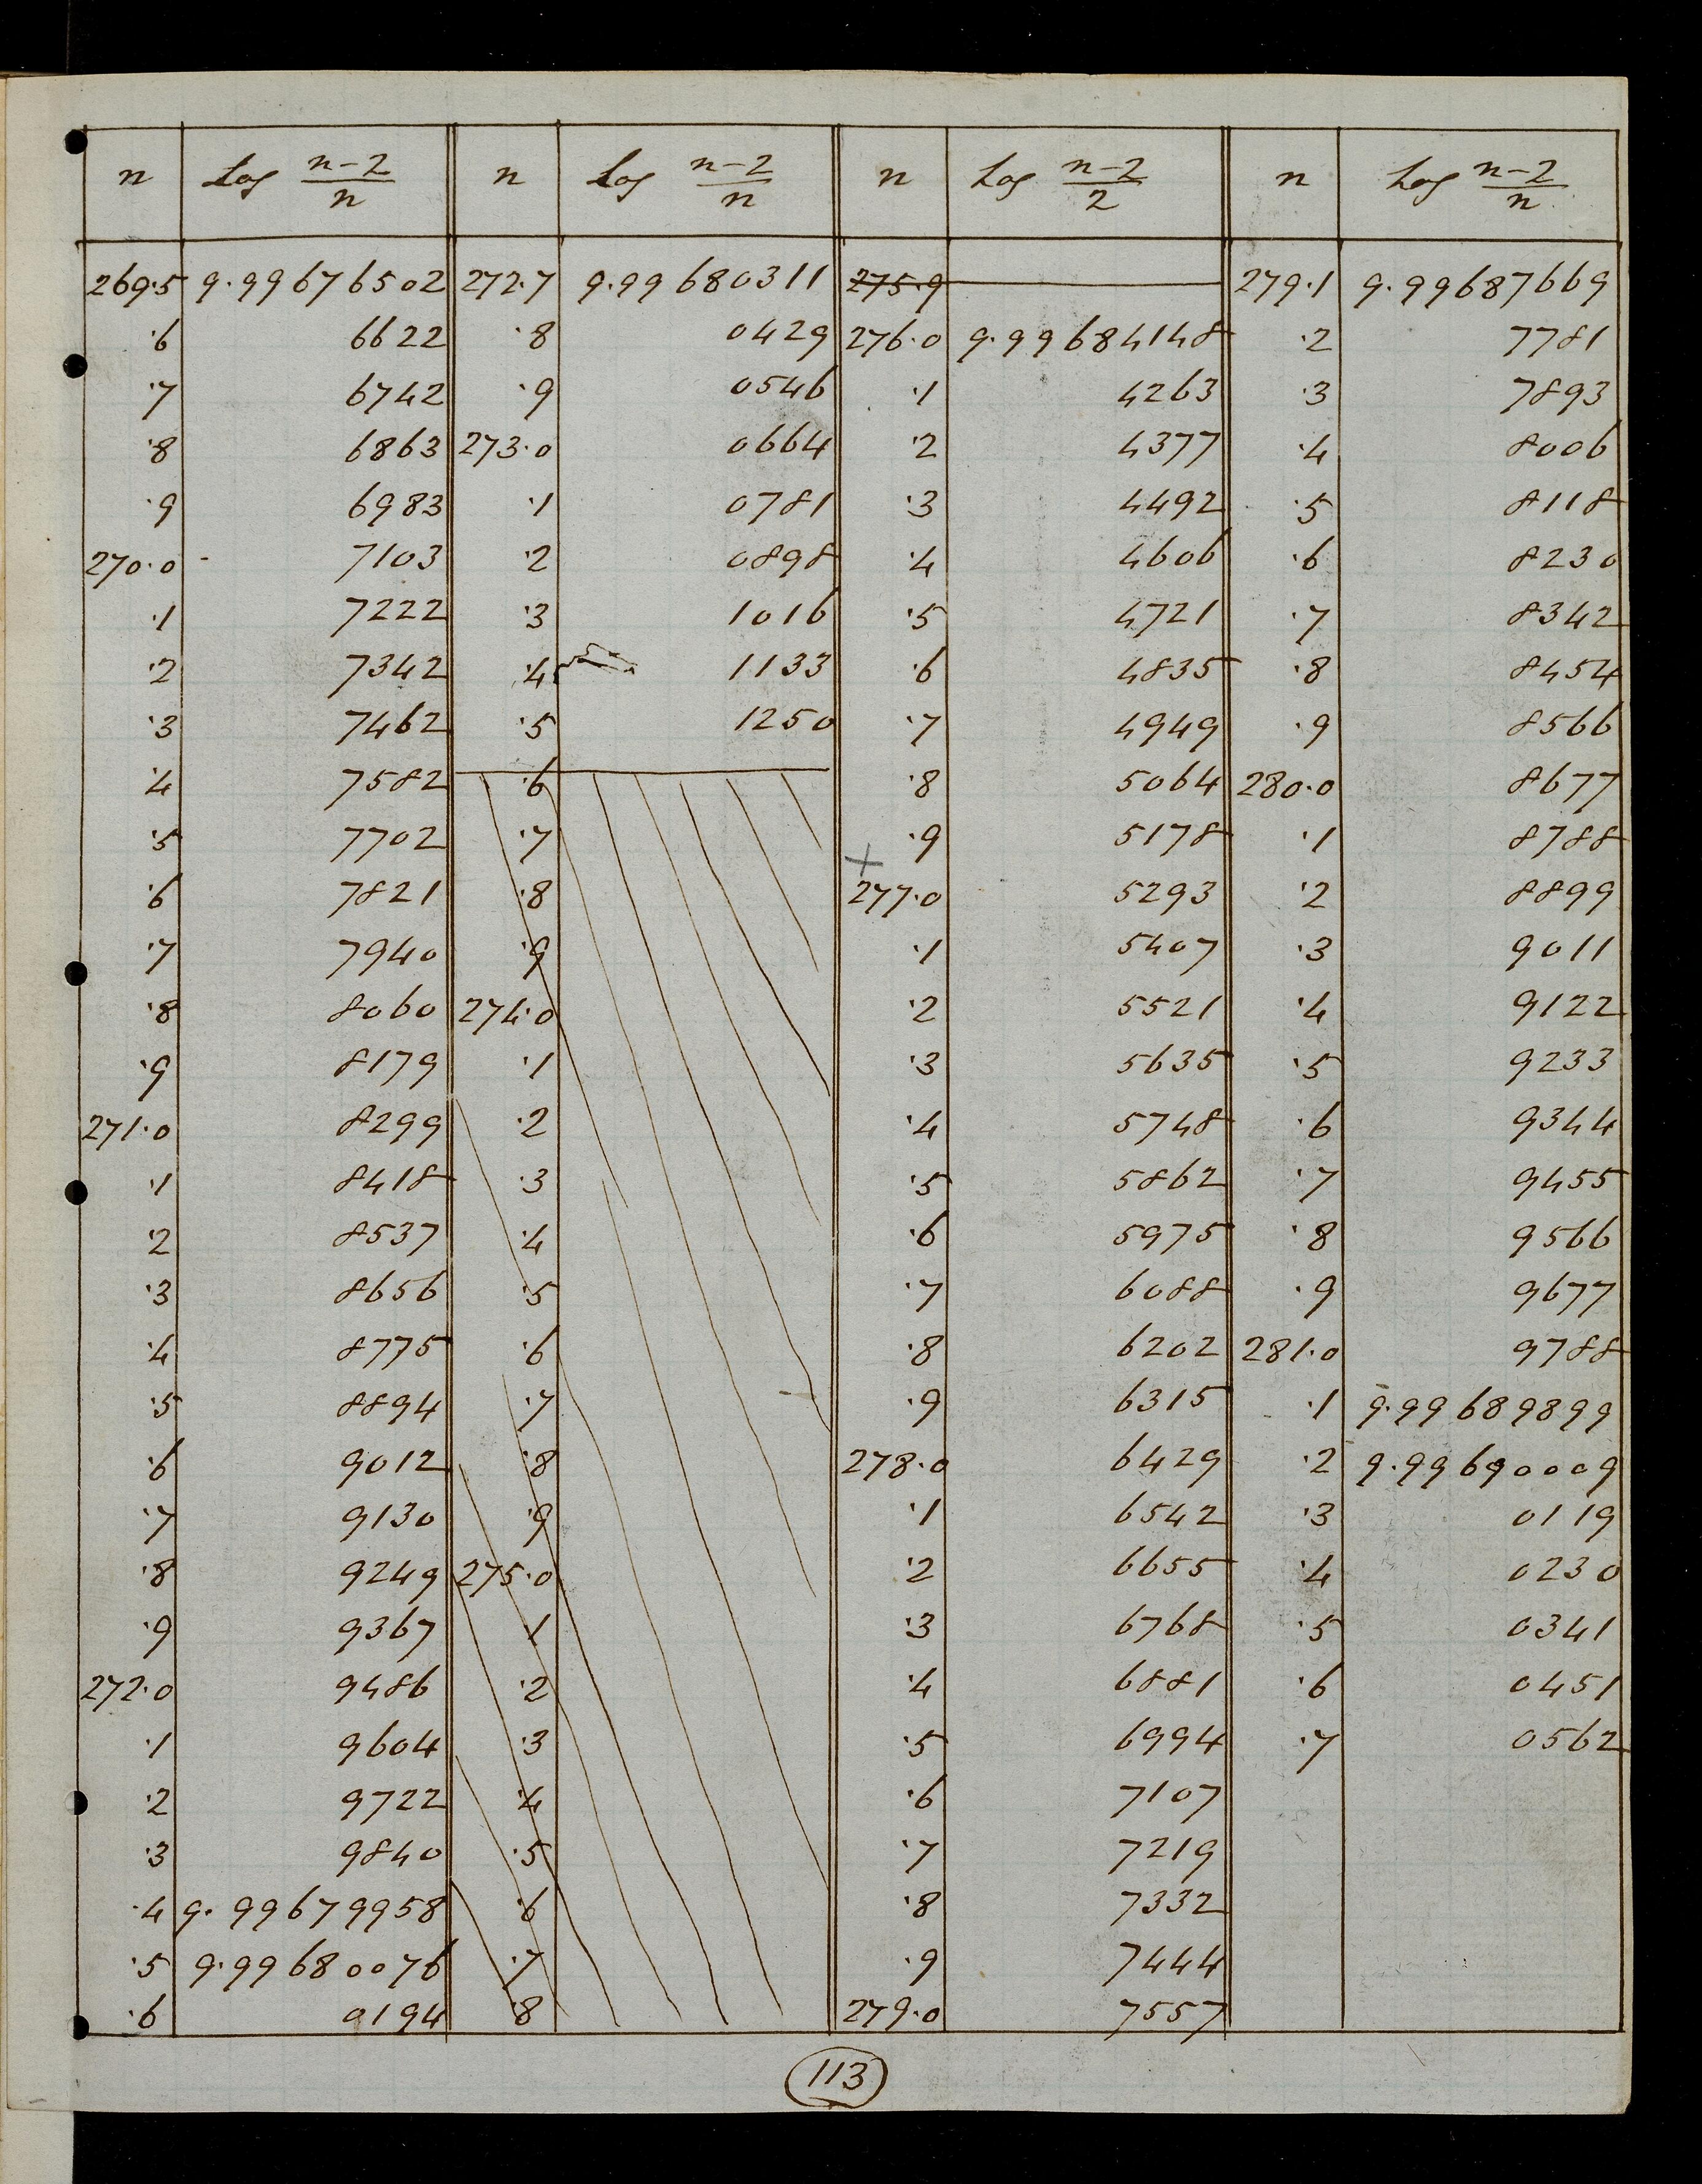 n Log n-2/n n Log n-2/n n Log n-2/2 n Log n-2/n
269.5 9.99676502 272.7 9.99680311 275.9 279.1 9.99687669
.6 6622 .8 0429 276.0 9.99684148 .2 7781
.7 6742 .9 0546 .1 4263 .3 7893
.8 6863 273.0 0664 .2 4377 .4 8006
.9 6983 .1 0781 .3 4492 .5 8118
270.0 7103 .2 0898 .4 4606 .6 8230
.1 7222 .3 1016 .5 4721 .7 8342
.2 7342 .4 1133 .6 4835 .8 8454
.3 7462 .5 1250 .7 4949 .9 8566
.4 7582 .6 .8 5064 280.0 8677
.5 7702 .7 .9 5178 .1 8788
.6 7821 .8 277.0 5293 .2 8899
.7 7940 .9 .1 5407 .3 9011
.8 8060 274.0 .2 5521 .4 9122
.9 8179 .1 .3 5635 .5 9233
271.0 8299 .2 .4 5748 .6 9344
.1 8418 .3 .5 5862 .7 9455
.2 8537 .4 .6 5975 .8 9566
.3 8656 .5 .7 6088 .9 9677
.4 8775 .6 .8 6202 281.0 9788
.5 8894 .7 .9 6315 .1 9.99689899
.6 9012 .8 278.0 6429 .2 9.99690009
.7 9130 .9 .1 6542 .3 0119
.8 9249 275.0 .2 6655 .4 0230
.9 9367 .1 .3 6768 .5 0341
272.0 9486 .2 .4 6881 .6 0451
.1 9604 .3 .5 6994 .7 0562
.2 9722 .4 .6 7107
.3 9840 .5 .7 7219
.4 9.99679958 .6 .8 7332
.5 9.99680076 .7 .9 7444
.6 0194 .8 279.0 7557
113